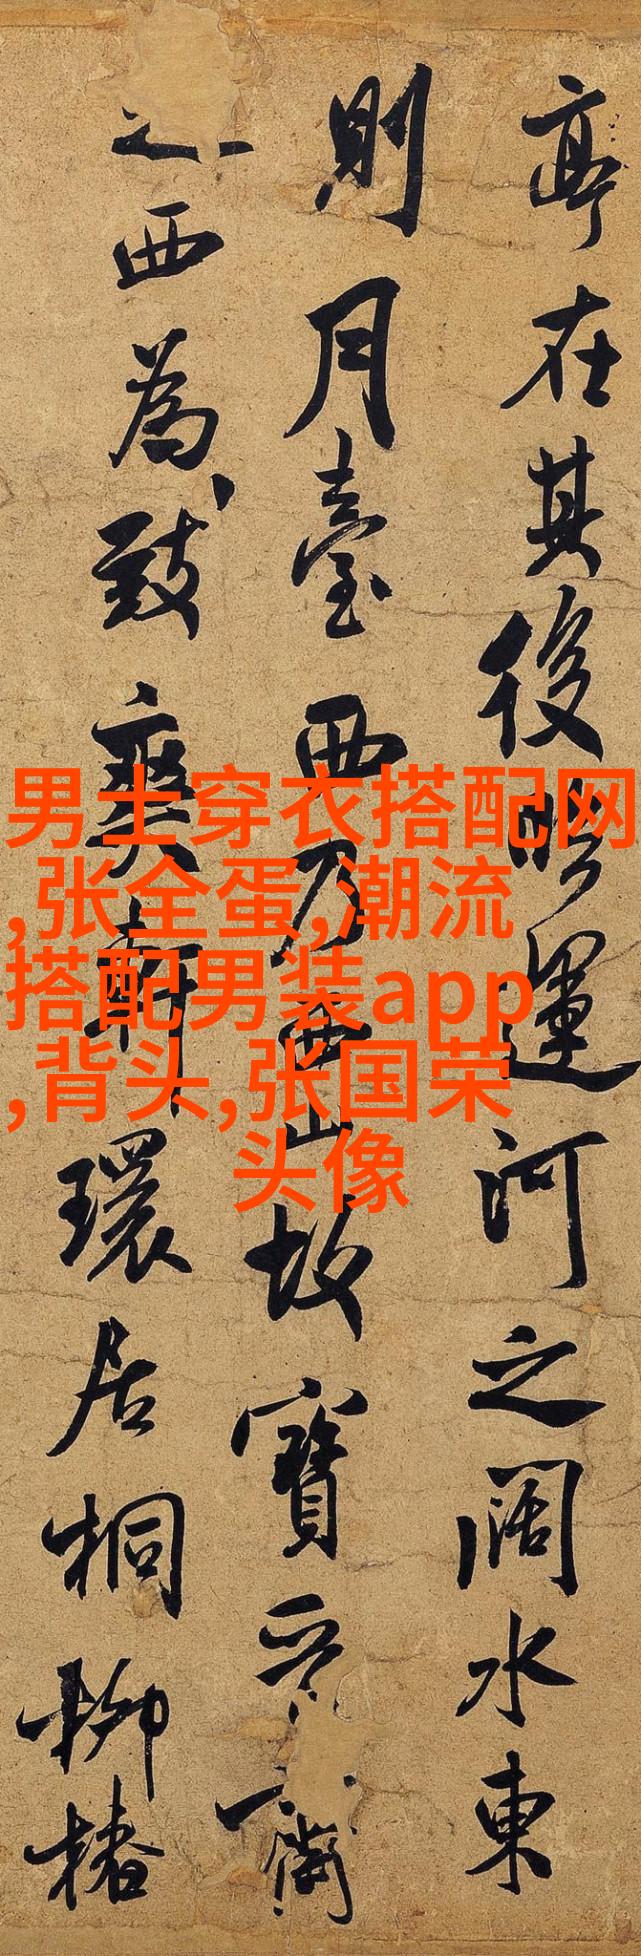 亭在其後臨運河之闊水東
則月臺西乃西山故寶晉齋
之西為致爽軒環居桐柳椿
男士穿衣搭配网
,张全蛋,潮流
搭配男装app
,背头,张国荣
头像